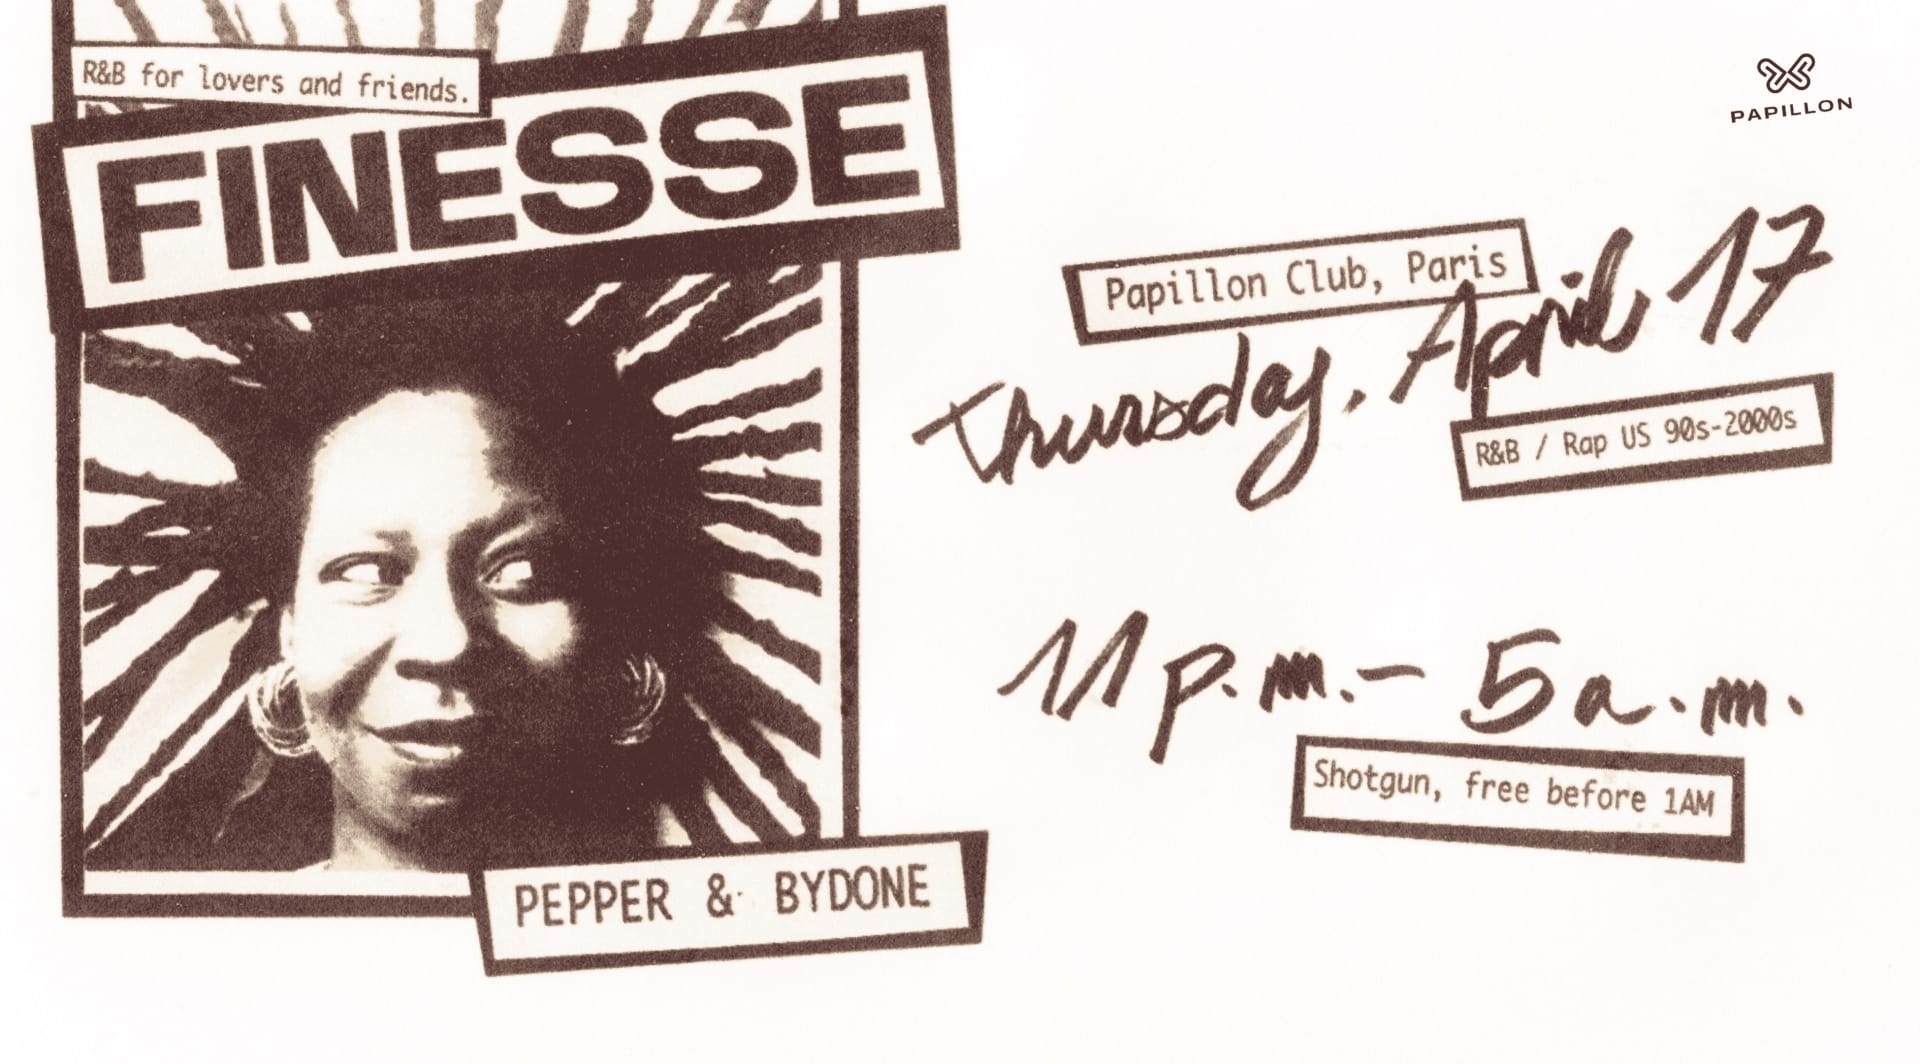 R&B for lovers and friends.
FINESSE
PEPPER & BYDONE
PAPILLON
Papillon Club, Paris
Thursday, April 17
R&B / Rap US 90s-2000s
11 p.m. - 5 a.m.
Shotgun, free before 1AM